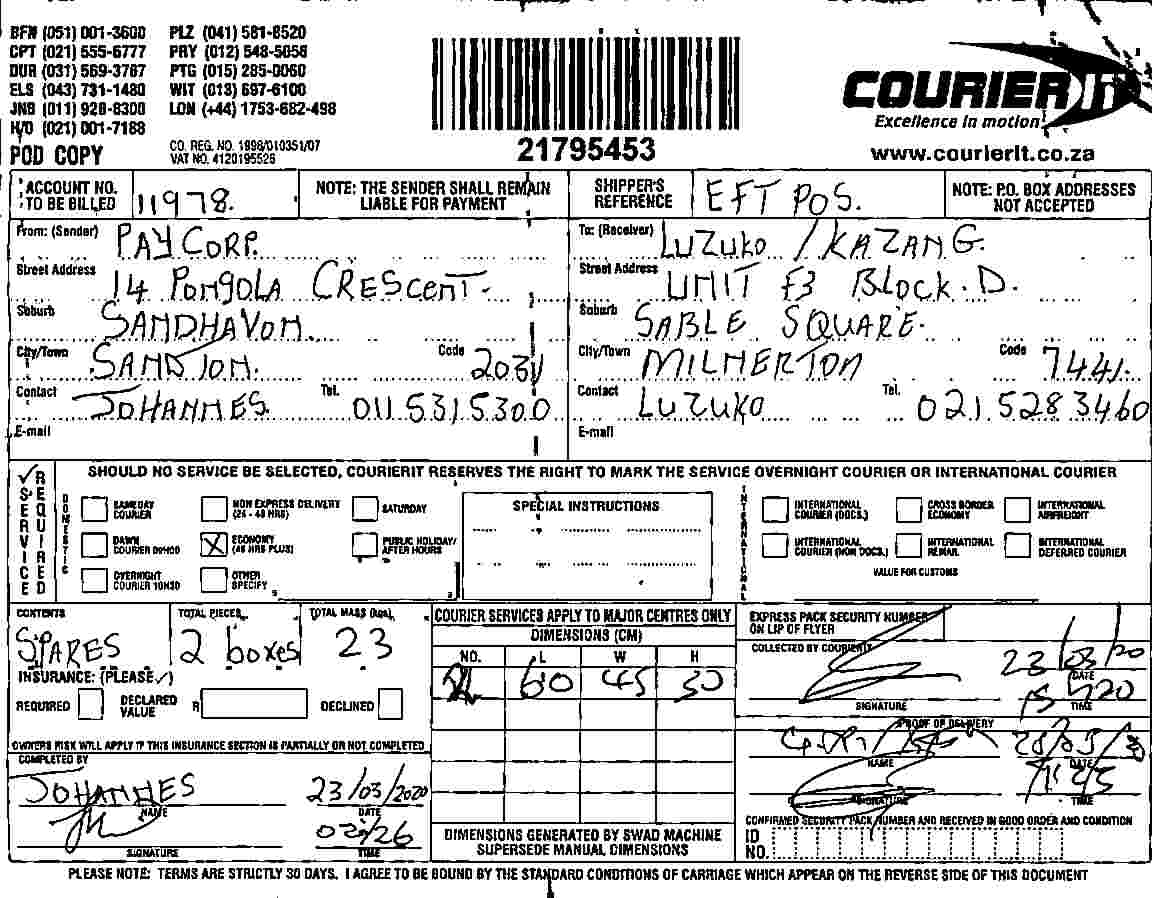 BFN (051) 001-3600 PLZ (041) 581-8520
CPT (021) 555-6777 PRY (012) 548-5058
DUR (031) 569-3787 PTG (015) 285-0060
ELS (043) 731-1480 WIT (013) 697-6100
JNB (011) 928-8300 LON (+44) 1753-682-498
H/O (021) 001-7188
POD COPY
CO. REG. NO. 1998/010351/07
VAT NO. 4120195525
21795453
COURIERIT
Excellence in motion
www.courierit.co.za
ACCOUNT NO. TO BE BILLED 11978.
NOTE: THE SENDER SHALL REMAIN LIABLE FOR PAYMENT
SHIPPER'S REFERENCE EFT POS.
NOTE: P.O. BOX ADDRESSES NOT ACCEPTED
From: (Sender) PAYCORP.
Street Address 14 PONGOLA CRESCENT.
Suburb SANDHAVON.
City/Town SANDTON. Code 2031
Contact JOHANNES. Tel. 011 531 5300
E-mail
To: (Receiver) LUZUKO / KAZANG.
Street Address UNIT F3 BLOCK. D.
Suburb SABLE SQUARE.
City/Town MILNERTON Code 7441.
Contact LUZUKO Tel. 021 528 3460
E-mail
✓ SERVICE REQUIRED
SHOULD NO SERVICE BE SELECTED, COURIERIT RESERVES THE RIGHT TO MARK THE SERVICE OVERNIGHT COURIER OR INTERNATIONAL COURIER
DOMESTIC
SAMEDAY COURIER
NON EXPRESS DELIVERY (24 - 48 HRS)
SATURDAY
DAWN COURIER
X ECONOMY (48 HRS PLUS)
PUBLIC HOLIDAY/ AFTER HOURS
OVERNIGHT COURIER 10H30
OTHER SPECIFY
SPECIAL INSTRUCTIONS
INTERNATIONAL
INTERNATIONAL COURIER (DOCS.)
CROSS BORDER ECONOMY
INTERNATIONAL AIRFREIGHT
INTERNATIONAL COURIER (NON DOCS.)
INTERNATIONAL REMAIL
INTERNATIONAL DEFERRED COURIER
VALUE FOR CUSTOMS
CONTENTS SPARES
TOTAL PIECES 2 boxes
TOTAL MASS (kgs) 23
INSURANCE: (PLEASE ✓)
REQUIRED
DECLARED VALUE R
DECLINED
OWNERS RISK WILL APPLY IF THIS INSURANCE SECTION IS PARTIALLY OR NOT COMPLETED
COMPLETED BY
JOHANNES 23/03/2020
NAME DATE
SIGNATURE TIME
COURIER SERVICES APPLY TO MAJOR CENTRES ONLY
DIMENSIONS (CM)
NO. L W H
60 45 30
DIMENSIONS GENERATED BY SWAD MACHINE SUPERSEDE MANUAL DIMENSIONS
EXPRESS PACK SECURITY NUMBER ON LIP OF FLYER
COLLECTED BY COURIERIT
23/03/20
DATE
SIGNATURE TIME
PROOF OF DELIVERY
NAME DATE
SIGNATURE TIME
CONFIRMED SECURITY PACK NUMBER AND RECEIVED IN GOOD ORDER AND CONDITION
ID NO.
PLEASE NOTE: TERMS ARE STRICTLY 30 DAYS. I AGREE TO BE BOUND BY THE STANDARD CONDITIONS OF CARRIAGE WHICH APPEAR ON THE REVERSE SIDE OF THIS DOCUMENT